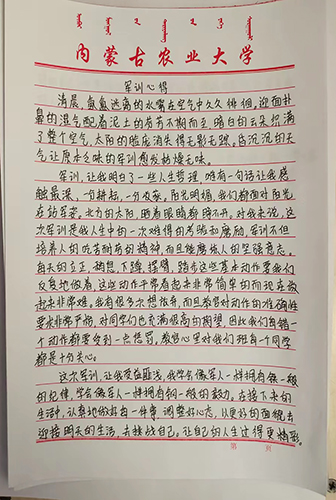 内蒙古农业大学
军训心得
清晨，氤氲迷离的水雾在空气中久久徘徊，迎面扑
鼻的湿气配着泥土的芳芳不期而至，暗白的云朵织满
了整个空气，太阳的脸庞消失得无影无踪。昏沉沉的天
气让原本乏味的军训愈发枯燥无味。
军训，让我明白了一些人生哲理，唯有一句话让我感
触最深，一分耕耘，一分收获，阳光明媚，我们都面对阳光
在站军姿，北方的太阳，晒着眼睛都睁不开。对我来说，这
次军训是我人生中的一次难得的考验和磨励，军训不但
培养人的吃苦耐劳的精神，而且能磨炼人的坚强意志。
每天的立正、稍息、下蹲、摆臂、踏步这些基本动作要我们
反复地做着，这些动作平常看起来非常简单的而现在做
起来非常难，我有很多次想放弃，而且教官对动作的准确性
要求非常严格，对同学们也充满很高的期望，因此我们每错一
个动作都要受到一点惩罚，教官心里对我们班每一个同学
都是十分关心。
这次军训，让我受益匪浅，我学会像军人一样拥有铁一般
的纪律，学会像军人一样拥有钢一般的毅力，去接下来的
生活中，认真地做好每一件事，调整好心态，以更好的面貌去
迎接明天的生活，去挑战自己。让自己的人生过得更精彩。
第 页